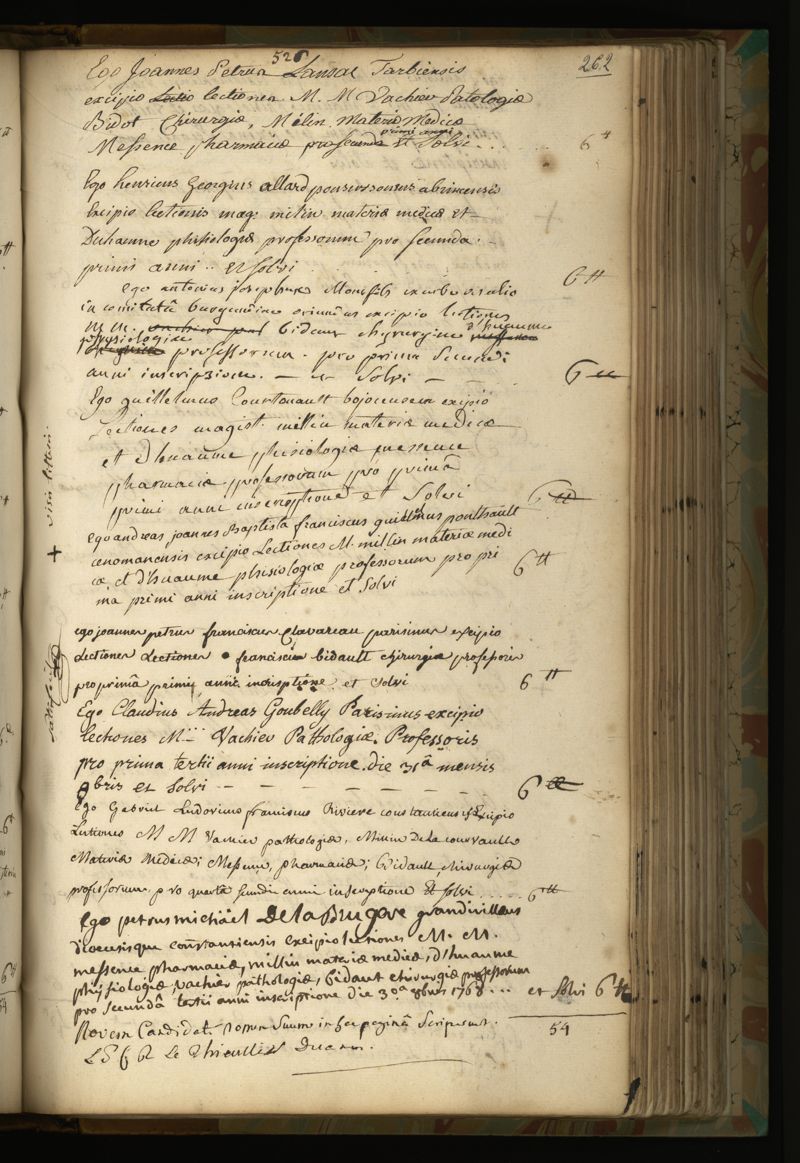 526
262
Ego Joannes Petrus Lansac Tarbiensis
excipio lectiones M. M Vachier Patologiæ
Bidot Chirurgiæ, Mélin Materiæ Medicæ
primi anni
Messence pharmaciæ pro secunda et Solvi... 6 tt
Ego henricus Georgius allard abrincensis
Excipio lectionis mag. milin materiæ medicæ Et
Duhaume phisiologiæ professorum pro secunda
primi anni .. Et solvi 6 tt
Ego antonius josephus ex urbe
in comitatu burgundiæ oriundus excipio lectiones
M. M. bidaut chyrurgiæ d'huaume
physiologiæ professorum. pro prima secundi
anni inscriptione. — et Solvi — — 6 tt
Ego guillelmus Courtonault bojocensem excipio
Lectiones magist. millin materiæ medicæ
et D'huaume phisiologiæ messence
pharmaciæ professorum pro primâ
primi anni inscriptione et Solvi 6 tt
Ego andreas joannes Baptista franciscus guillelmus
cenomanensis excipio Lectiones M. millin materiæ medi
cæ et d'huaume phisiologiæ professorum pro pri
ma primi anni inscriptione et Solvi 6 tt
ego joannes petrus franciscus Clavareau parisinus excipio
Lectiones Lectiones franciscii bidault chirurgiæ professoris
pro primâ primii annii inscriptione et solvi 6 tt
Ego Claudius Andreas Goubelly Parisinus excipio
lectiones M... Vachier Pathologiæ Professoris
pro prima tertii anni inscriptione. die 31â mensis
8bris et solvi — — — — — — 6 tt
Ego Gabriel Ludovicus franciscus Riviere constantiensis Excipio
Lectiones M M Vachier pathologiæ, Millin De la courvaulte
Materiæ Medicæ; Messence, pharmaciæ; Bidault, chirurgiæ
professorum, pro quarta secundi anni inscriptione Et solvi ..... 6 tt
Ego petrus michäel De la Brugere grandivilleus
diocesisque constantiensis excipio lectiones M. M.
messence pharmaciæ, millin materiæ medicæ, d'huaume
physiologiæ vachier pathologiæ, bidaut chirurgiæ professorum
pro secundâ tertii anni inscriptione die 30â 8bris 1768 ... et Solvi 6 tt
Novem Candidati nomen Suum in hac paginâ Scripserunt. 54
Le Thieullier Decan.